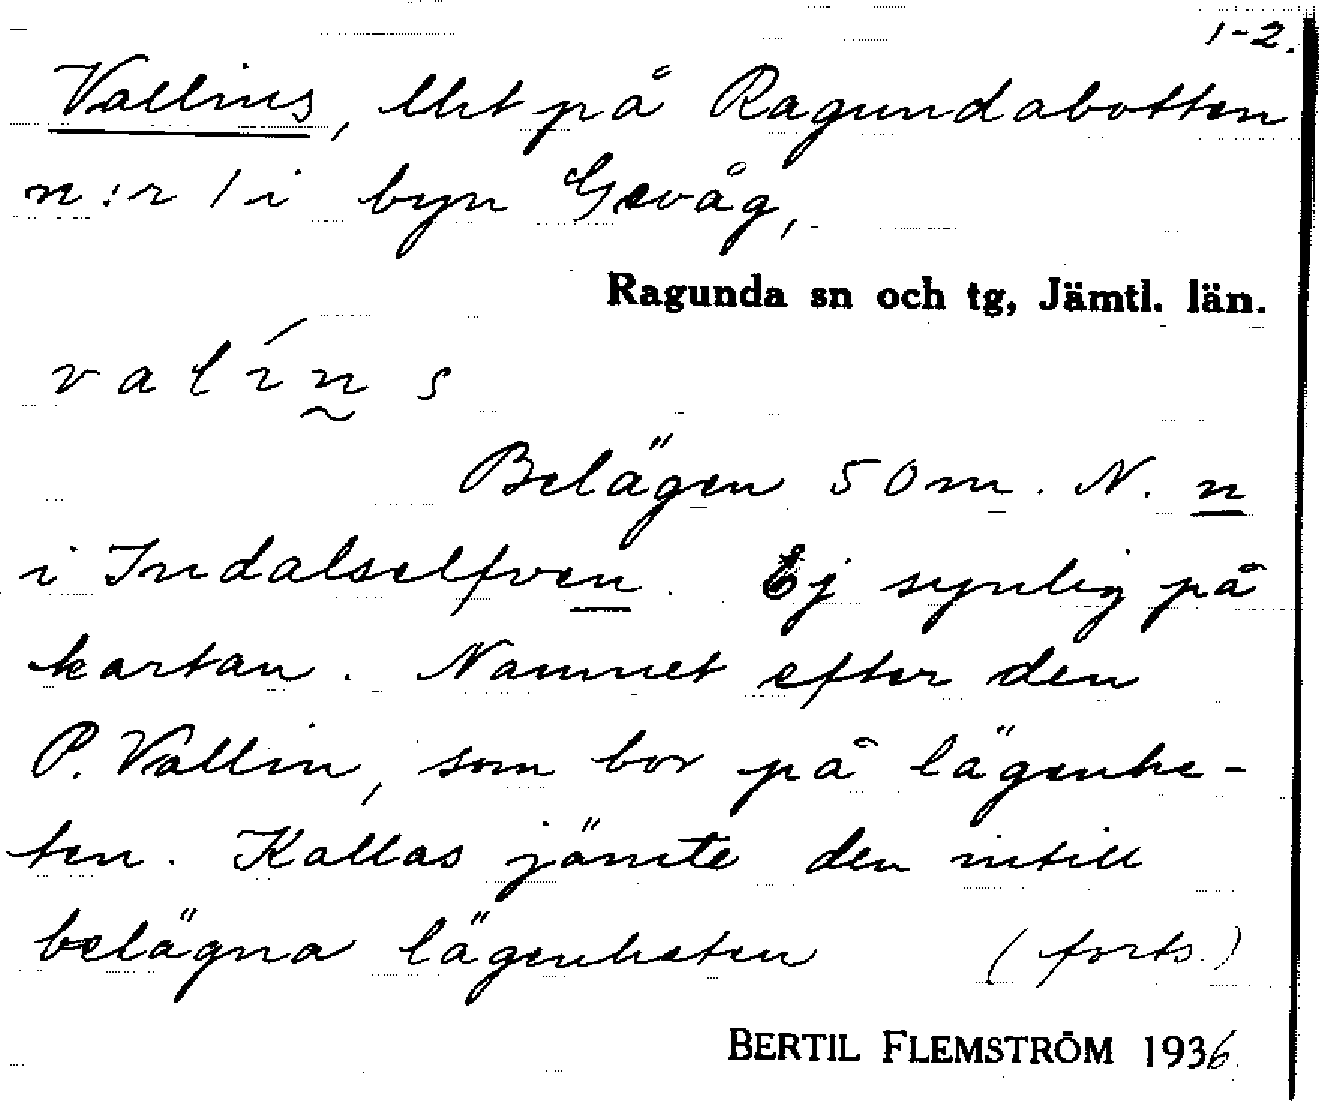 1-2.
Vallins, lht på Ragundabotten
n:r 1 i byn Gevåg,
Ragunda sn och tg, Jämtl. län.
valíns
Belägen 50 m. N. n
i Indalselfven. Ej synlig på
kartan. Namnet efter den
P. Vallin, som bor på lägenhe-
ten. Kallas jämte den intill
belägna lägenheten (forts.)
BERTIL FLEMSTRÖM 1936